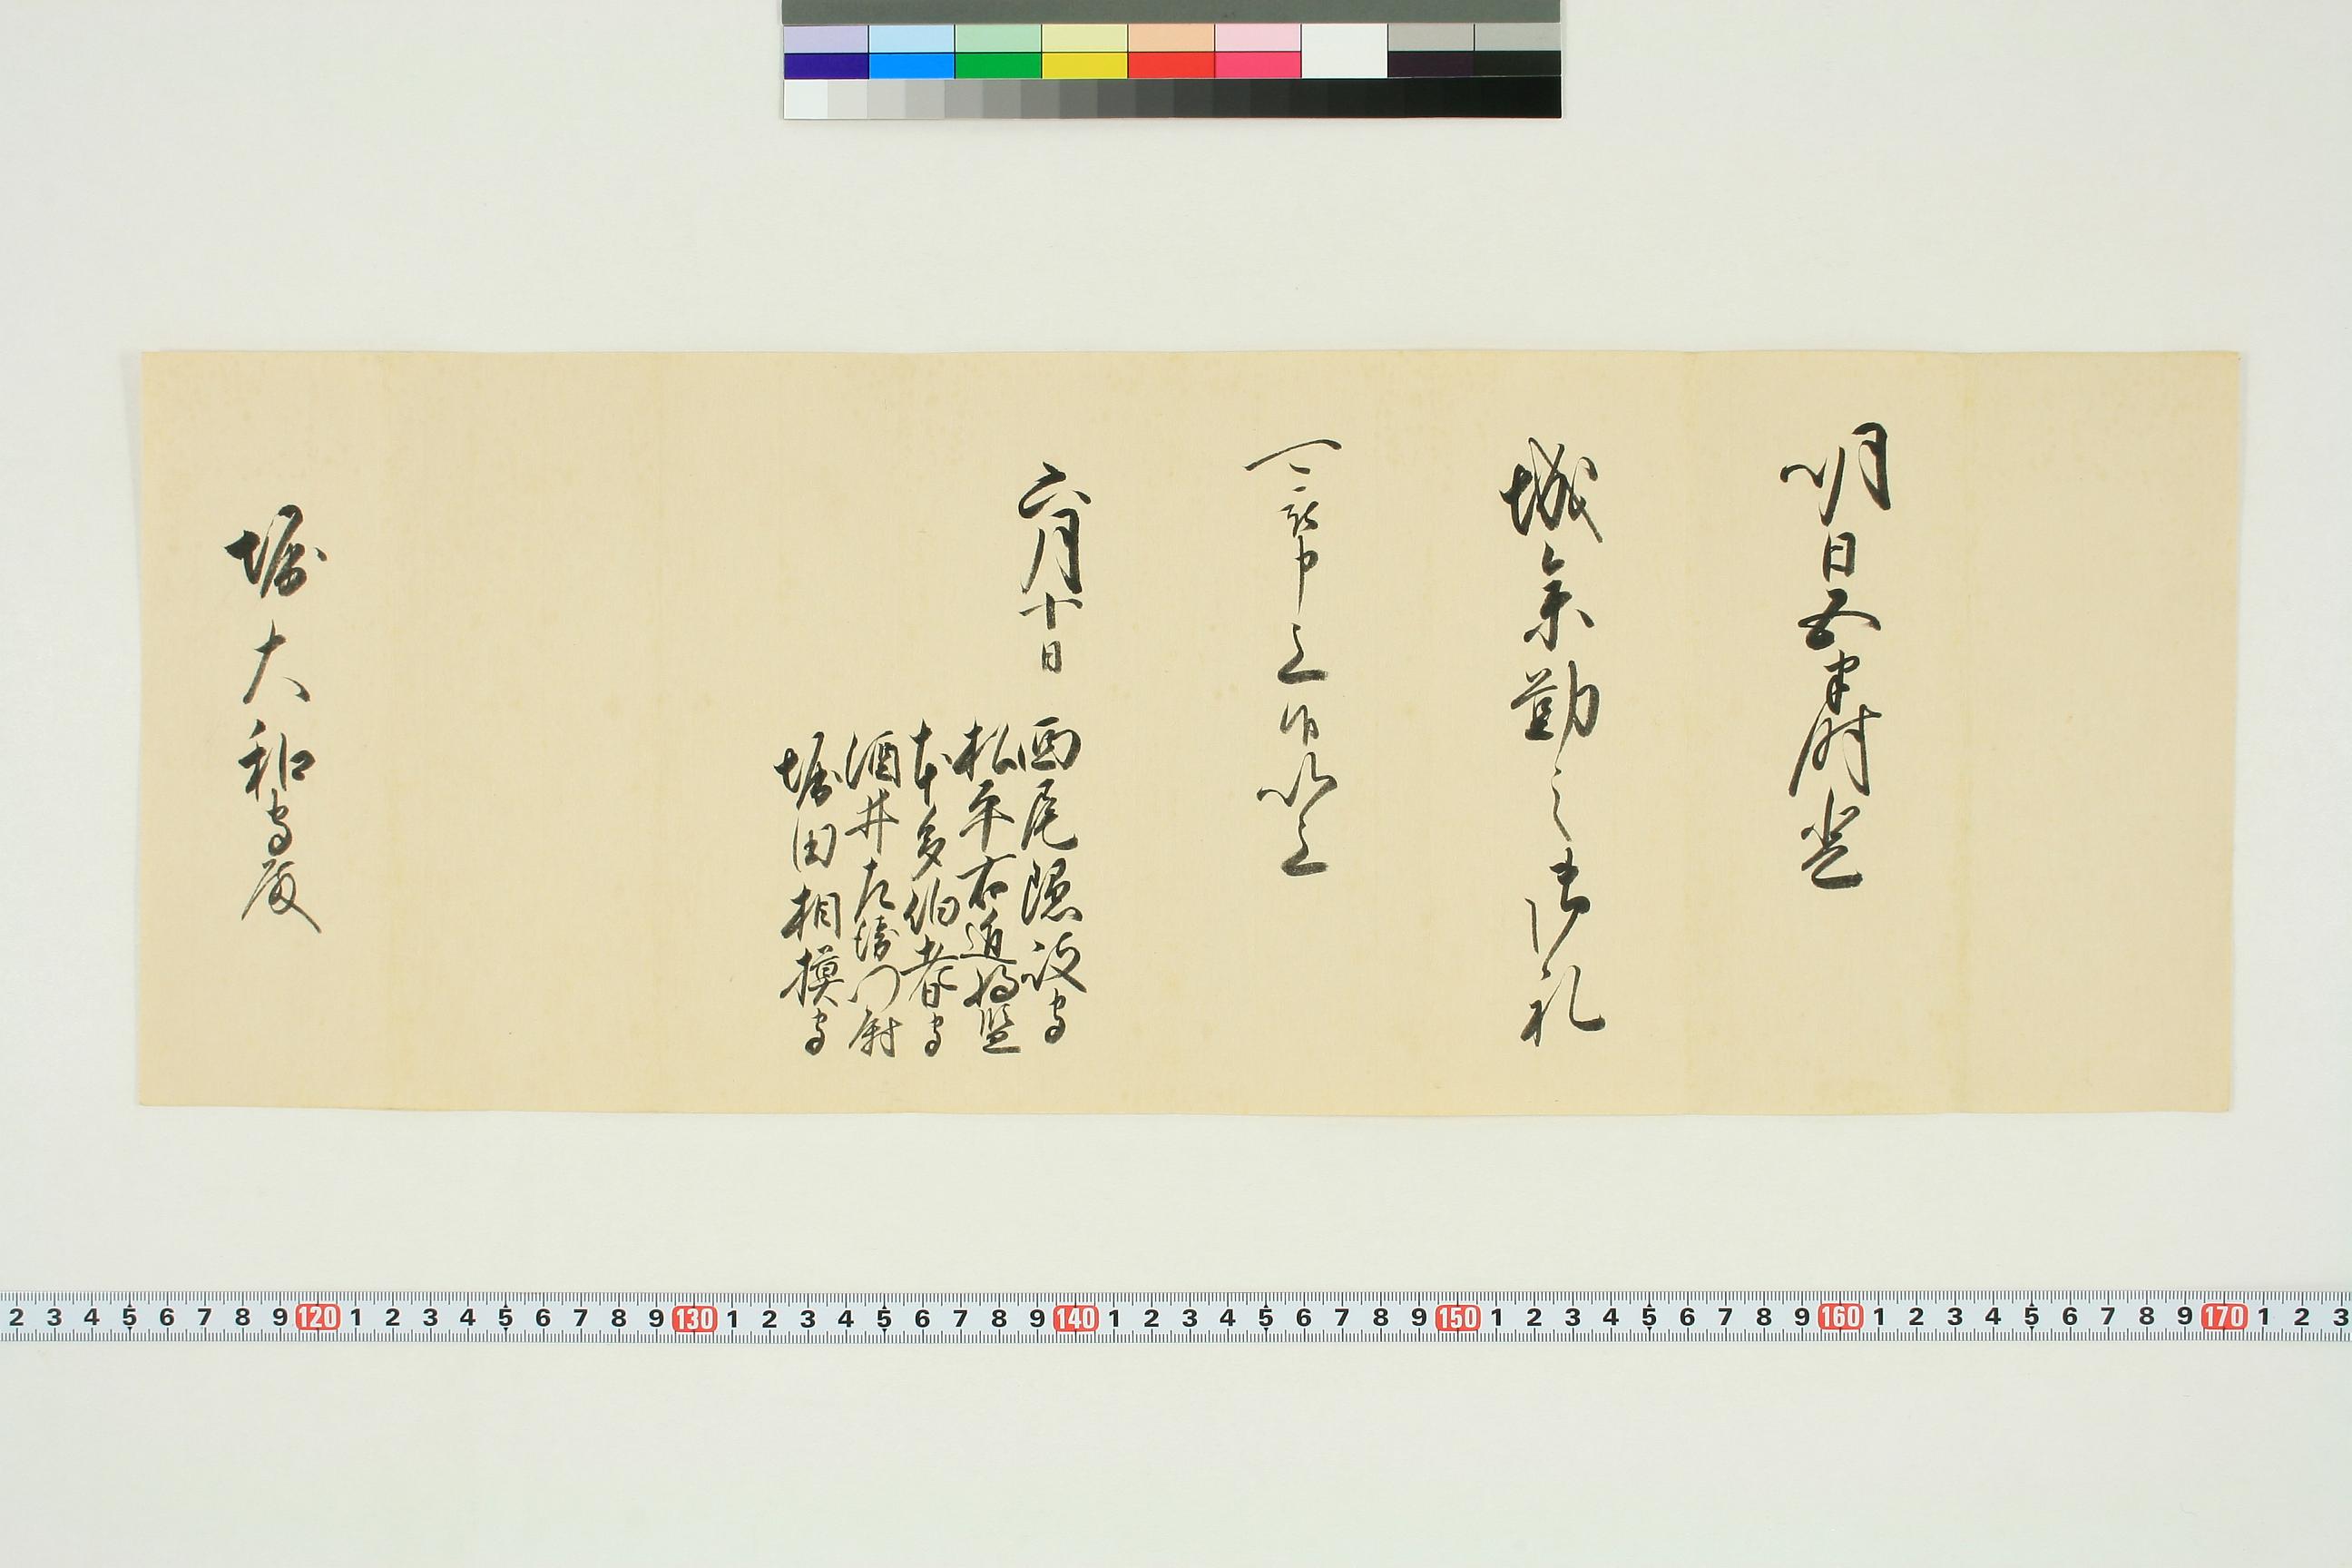 明日五半時登
城参勤之御礼
可被申上候以上
六月十日
西尾隠岐守
松平右近将監
本多伯耆守
酒井左衛門尉
堀田相模守
堀大和守殿
2 3 4 5 6 7 8 9 120 1 2 3 4 5 6 7 8 9 130 1 2 3 4 5 6 7 8 9 140 1 2 3 4 5 6 7 8 9 150 1 2 3 4 5 6 7 8 9 160 1 2 3 4 5 6 7 8 9 170 1 2 3